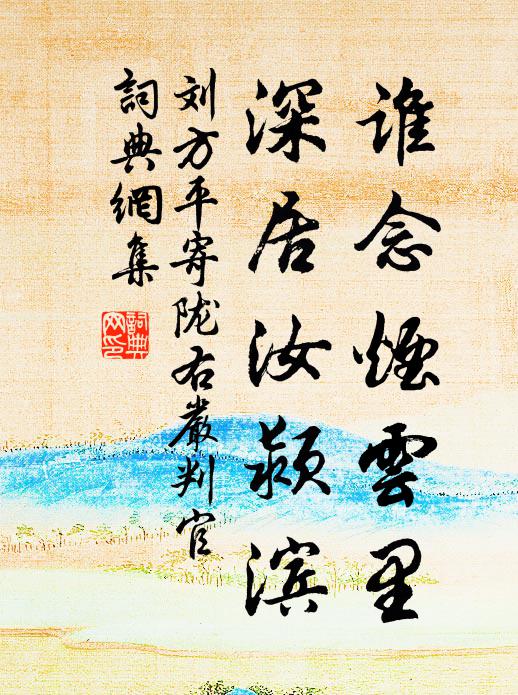 谁念煙雲里
深居汝颍滨
刘方平寄陇右嚴判官
詞典網集
詞典網印